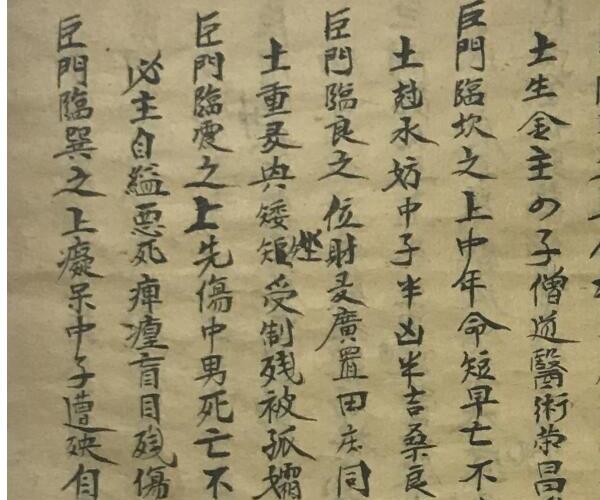 土生金主少子僧道醫術榮昌
巨門臨坎之上中年命短早亡不
土尅水妨中子半凶半吉桑良
巨門臨良之位財廣置田庄同
土重典矮矩矬受制殘被孤孀
巨門臨震之上先傷中男死亡不
必主自縊惡死盲目殘傷
巨門臨巽之上癡呆中子遭殃自